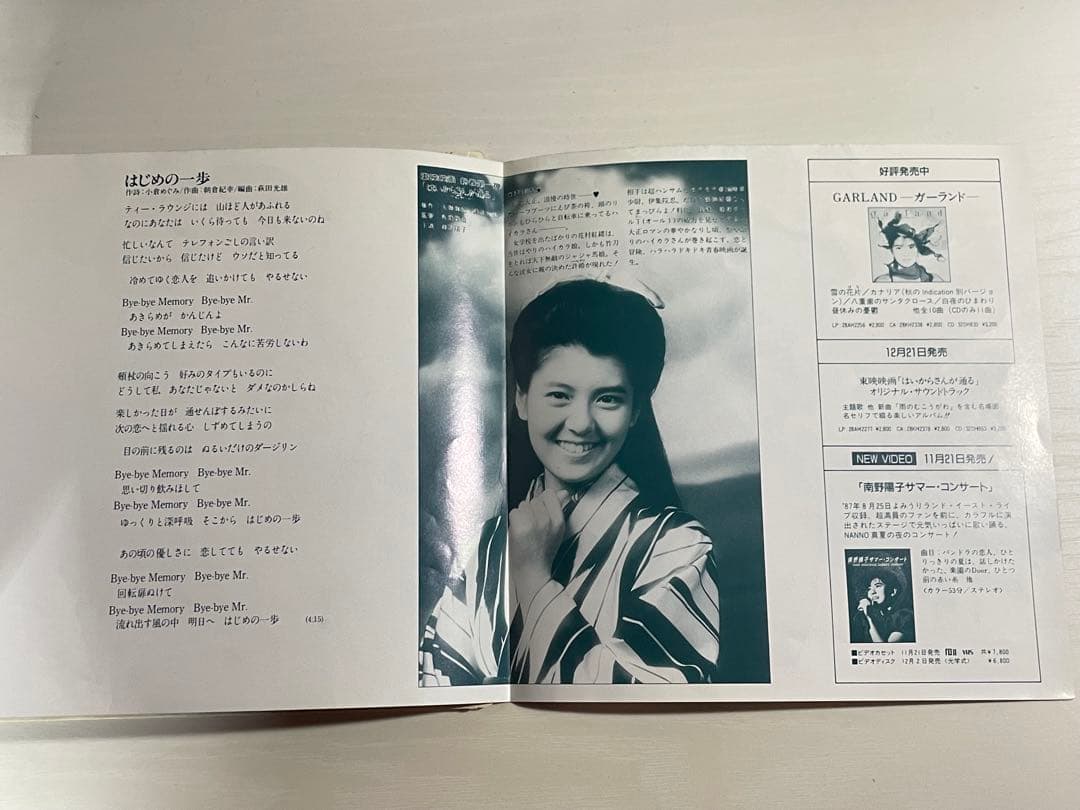 はじめの一歩
作詩:小倉めぐみ/作曲:朝倉紀幸/編曲:萩田光雄
ティー・ラウンジには 山ほど人があふれる
なのにあなたは いくら待っても 今日も来ないのね
忙しいなんて テレフォンごしの言い訳
信じたいから 信じたけど ウソだと知ってる
冷めてゆく恋人を 追いかけても やるせない
Bye-bye Memory Bye-bye Mr.
あきらめが かんじんよ
Bye-bye Memory Bye-bye Mr.
あきらめてしまえたら こんなに苦労しないわ
頬杖の向こう 好みのタイプもいるのに
どうして私 あなたじゃないと ダメなのかしらね
楽しかった日が 通せんぼするみたいに
次の恋へと揺れる心 しずめてしまうの
目の前に残るのは ぬるいだけのダージリン
Bye-bye Memory Bye-bye Mr.
思い切り飲みほして
Bye-bye Memory Bye-bye Mr.
ゆっくりと深呼吸 そこから はじめの一歩
あの頃の優しさに 恋してても やるせない
Bye-bye Memory Bye-bye Mr.
回転扉ぬけて
Bye-bye Memory Bye-bye Mr.
流れ出す風の中 明日へ はじめの一歩 (4:15)
大正ロマンの華やかなりし頃、
りのハイカラさんが巻き起こす、恋と
冒険、ハラハラドキドキ青春映画が誕
生。
女学校を出たばかりの花村紅緒は、
当世はやりのハイカラ娘。しかも竹刀
をとれば天下無敵のジャジャ馬娘。そ
んな彼女に親の決めた許婚が現れた!
好評発売中
GARLAND —ガーランド—
garland
雪の花片/カナリア(秋のIndication別バージョ
ン)/八重奏のサンタクロース/白夜のひまわり
昼休みの憂鬱 他全10曲(CDのみ11曲)
LP 28AH2256 ¥2,800 CA 28KH2338 ¥2,800 CD 32DH830 ¥3,200
12月21日発売
東映映画「はいからさんが通る」
オリジナル・サウンドトラック
主題歌 他 新曲「雨のむこうがわ」を含む名場面
名セリフで綴る楽しいアルバム!!
LP:28AH2277 ¥2,800 CA:28KH2378 ¥2,800
NEW VIDEO 11月21日発売!
「南野陽子サマー・コンサート」
'87年8月25日よみうりランド・イースト・ライ
ブ収録、超満員のファンを前に、カラフルに演
出されたステージで元気いっぱいに歌い踊る、
NANNO真夏の夜のコンサート!
南野陽子サマー・コンサート
曲目:パンドラの恋人、ひと
りっきりの夏は、話しかけた
かった、楽園のDoor、ひとつ
前の赤い糸 他
〈カラー53分/ステレオ〉
■ビデオカセット 11月21日発売 VHS 共¥7,800
■ビデオディスク 12月2日発売(光学式) ¥6,800